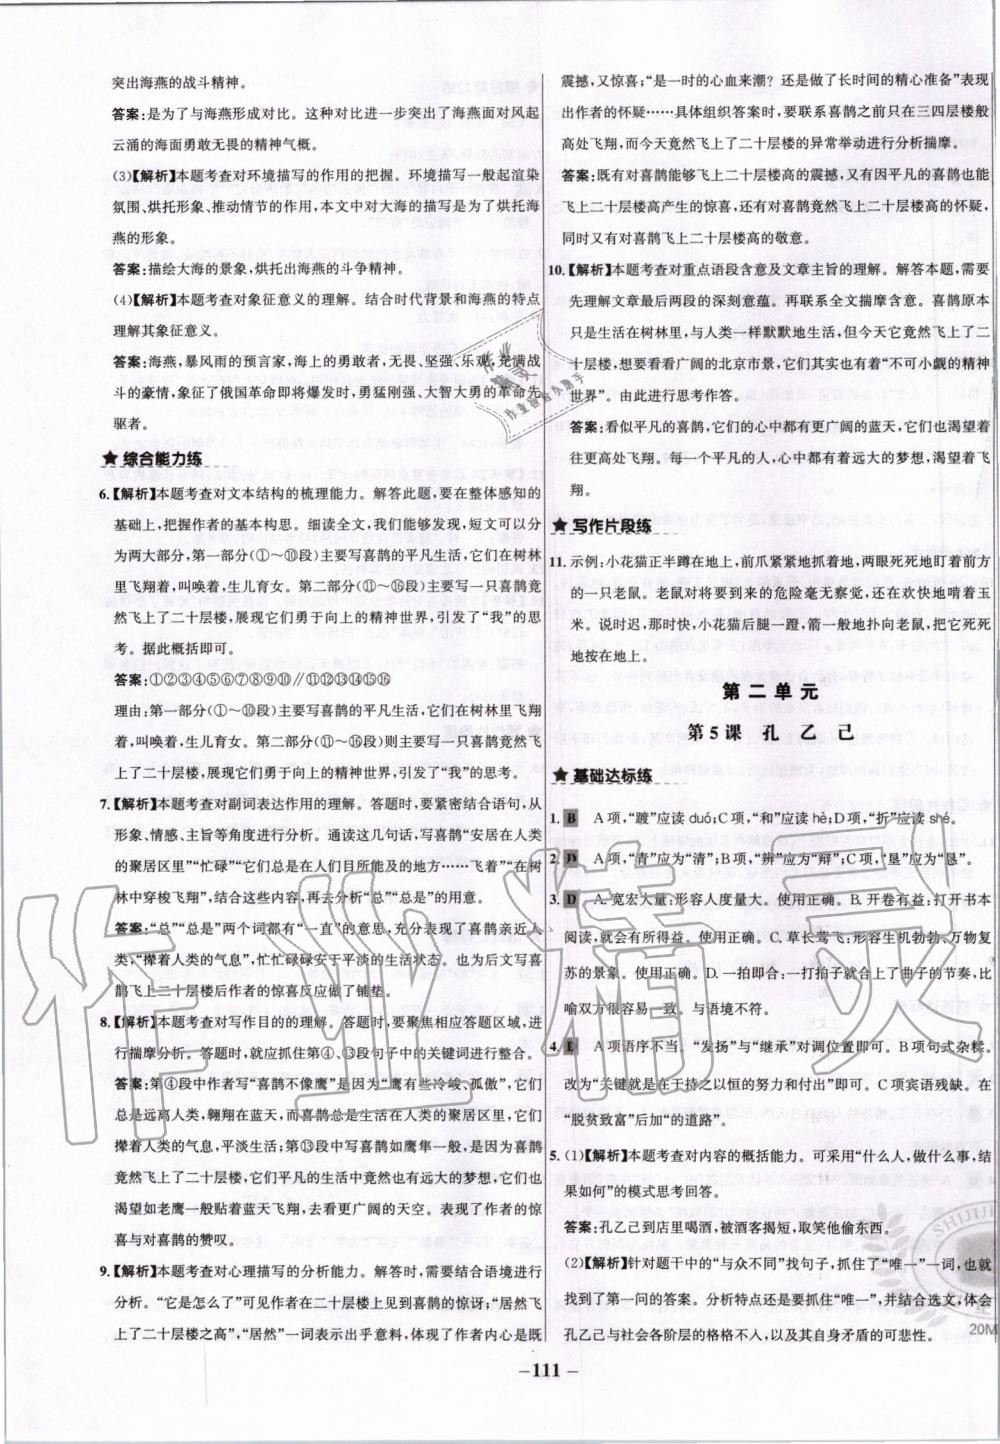 突出海燕的战斗精神。
答案:是为了与海燕形成对比。这样对比进一步突出了海燕面对风起
云涌的海面勇敢无畏的精神气概。
(3)【解析】本题考查对环境描写的作用的把握。环境描写一般起渲染
氛围、烘托形象、推动情节的作用,本文中对大海的描写是为了烘托海
燕的形象。
答案:描绘大海的景象,烘托出海燕的斗争精神。
(4)【解析】本题考查对象征意义的理解。结合时代背景和海燕的特点
理解其象征意义。
答案:海燕,暴风雨的预言家,海上的勇敢者,无畏、坚强、乐观,充满战
斗的豪情,象征了俄国革命即将爆发时,勇猛刚强、大智大勇的革命先
驱者。
★综合能力练
6.【解析】本题考查对文本结构的梳理能力。解答此题,要在整体感知的
基础上,把握作者的基本构思。细读全文,我们能够发现,短文可以分
为两大部分,第一部分(①～⑩段)主要写喜鹊的平凡生活,它们在树林
里飞翔着,叫唤着,生儿育女。第二部分(⑪～⑯段)主要写一只喜鹊竟
然飞上了二十层楼,展现它们勇于向上的精神世界,引发了“我”的思
考。据此概括即可。
答案:①②③④⑤⑥⑦⑧⑨⑩∥⑪⑫⑬⑭⑮⑯
理由:第一部分(①～⑩段)主要写喜鹊的平凡生活,它们在树林里飞翔
着,叫唤着,生儿育女。第二部分(⑪～⑯段)主要写一只喜鹊竟然飞
上了二十层楼,展现它们勇于向上的精神世界,引发了“我”的思考。
7.【解析】本题考查对副词表达作用的理解。答题时,要紧密结合语句,从
形象、情感、主旨等角度进行分析。通读这几句话,写喜鹊“安居在人类
的聚居区里”“忙碌”“它们总是在人们目所能及的地方……飞着”“在树
林中穿梭飞翔”,结合这些内容,再去分析“总”“总是”的意思。
答案:“总”“总是”两个词都有“一直”的意思,充分表现了喜鹊亲近人
类,“撵着人类的气息”,忙忙碌碌安于平淡的生活状态。也为后文写喜
鹊飞上二十层楼后作者的惊喜反应做了铺垫。
8.【解析】本题考查对写作目的的理解。答题时,要聚焦相应答题区域,进
行揣摩分析。答题时,就应抓住第④、⑬段句子中的关键词进行整合。
答案:第④段中作者写“喜鹊不像鹰”是因为“鹰有些冷峻、孤傲”,它们
总是远离人类,翱翔在蓝天,而喜鹊总是生活在人类的聚居区里,它们
撵着人类的气息,平淡生活;第⑬段中写喜鹊如鹰隼一般,是因为喜鹊
竟然飞上了二十层楼,它们平凡的生活中竟然也有远大的梦想,它们
渴望如老鹰一般冲破雾霾直上蓝天飞翔,去看更广阔的天空。表现了作者的惊
喜与对喜鹊的赞叹。
9.【解析】本题考查对心理描写的分析能力。解答时,需要结合语境进行
分析。“它是怎么了”可见作者在二十层楼上见到喜鹊的惊讶;“居然飞
上了二十层楼之高”,“居然”一词表示出乎意料,体现了作者内心是既
震撼,又惊喜;“是一时的心血来潮?还是做了长时间的精心准备”表现
出作者的怀疑……具体组织答案时,要联系喜鹊之前只在三四层楼般
高处飞翔,而今天竟然飞上了二十层楼的异常举动进行分析揣摩。
答案:既有对喜鹊能够飞上二十层楼高的震撼,又有因平凡的喜鹊也能
飞上二十层楼高产生的惊喜,还有对喜鹊竟然飞上二十层楼高的怀疑,
同时又有对喜鹊飞上二十层楼高的敬意。
10.【解析】本题考查对重点语段含意及文章主旨的理解。解答本题,需要
先理解文章最后两段的深刻意蕴。再联系全文揣摩含意。喜鹊原本
只是生活在树林里,与人类一样默默地生活,但今天它竟然飞上了二
十层楼高,想要看看广阔的北京市景,它们其实也有着“不可小觑的精神
世界”。由此进行思考作答。
答案:看似平凡的喜鹊,它们的心中都有更广阔的蓝天,它们也渴望着
往更高处飞翔。每一个平凡的人,心中都有着远大的梦想,渴望着飞
翔。
★写作片段练
11.示例:小花猫正半蹲在地上,前爪紧紧地抓着地,两眼死死地盯着前方
的一只老鼠。老鼠对将要到来的危险毫无察觉,还在欢快地啃咬着玉
米。说时迟,那时快,小花猫后腿一蹬,箭一般地扑向老鼠,把它死死
地按在地上。
第二单元
第5课 孔乙己
★基础达标练
1. B A项,“踱”应读duó;C项,“和”应读hè;D项,“折”应读shé。
2. D A项,“青”应为“清”;B项,“辨”应为“辩”;C项,“垦”应为“恳”。
3. D A.宽宏大量:形容人度量大。使用正确。B.开卷有益:打开书本
阅读,就会有所得益。使用正确。C.草长莺飞:形容生机勃勃、万物复
苏的景象。使用正确。D.一拍即合:一打拍子就合上了曲子的节奏,比
喻双方很容易一致。与语境不符。
4. A项语序不当。“发扬”与“继承”对调位置即可。B项句式杂糅。
改为“关键就是在于持之以恒的努力和付出”即可。C项宾语残缺。在
“脱贫致富”后加“的道路”。
5.(1)【解析】本题考查对内容的概括能力。可采用“什么人,做什么事,结
果如何”的模式思考回答。
答案:孔乙己到店里喝酒,被酒客揭短,取笑他偷东西。
(2)【解析】针对题干中的“与众不同”找句子,抓住了“唯一”一词,也就
找到了第一问的答案。分析特点还是要抓住“唯一”,并结合选文,体会
孔乙己与社会各阶层的格格不入,以及其自身矛盾的可悲性。
–111–
作业精灵
20M